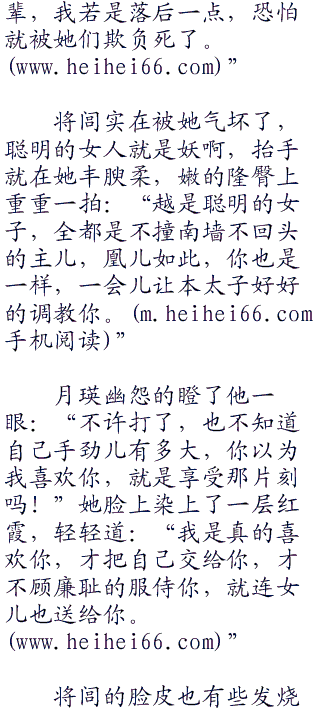 辈，我若是落后一点，恐怕
就被她们欺负死了。
(www.heihei66.com)”
将闾实在被她气坏了，
聪明的女人就是妖啊，抬手
就在她丰腴柔，嫩的隆臀上
重重一拍：“越是聪明的女
子，全都是不撞南墙不回头
的主儿，凰儿如此，你也是
一样，一会儿让本太子好好
的调教你。(m.heihei66.com
手机阅读)”
月瑛幽怨的瞪了他一
眼：“不许打了，也不知道
自己手劲儿有多大，你以为
我喜欢你，就是享受那片刻
吗！”她脸上染上了一层红
霞，轻轻道：“我是真的喜
欢你，才把自己交给你，才
不顾廉耻的服侍你，就连女
儿也送给你。
(www.heihei66.com)”
将闾的脸皮也有些发烧